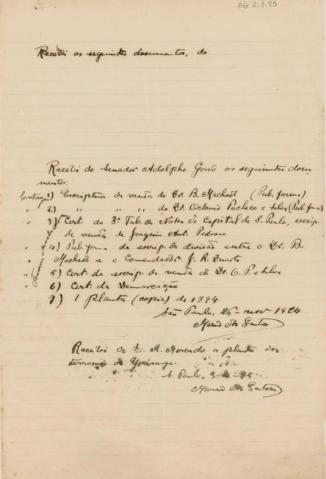 AG 2.3.95
Recebi os seguintes documentos, de
Recebi do Senador Adolpho Gordo os seguintes docu
mentos:
1) Escriptura de venda do Dr. B. Machado (Pub. forma)
2) " " " do Dr. Octavio Pacheco e Silva (Pub. fora)
3) Cert. do 3º Tab. de Notas da Capital de S. Paulo, escrip.
de venda de Joaquim Ant. Pedroso
4) Pub. forma de escrip. de divisão entre o Dr. B.
Machado e o Comendador J. R. Duarte
5) Cert. de escrip. de venda do Dr. O. P. e Silva
6) Cert. de Demarcação
7) 1 planta (copia) de 1894
São Paulo, 25 - nov. 1924
Mario dos Santos
Recebi de A. Azevedo a planta dos
terrenos do Ypiranga.
S. Paulo,
Mario dos Santos